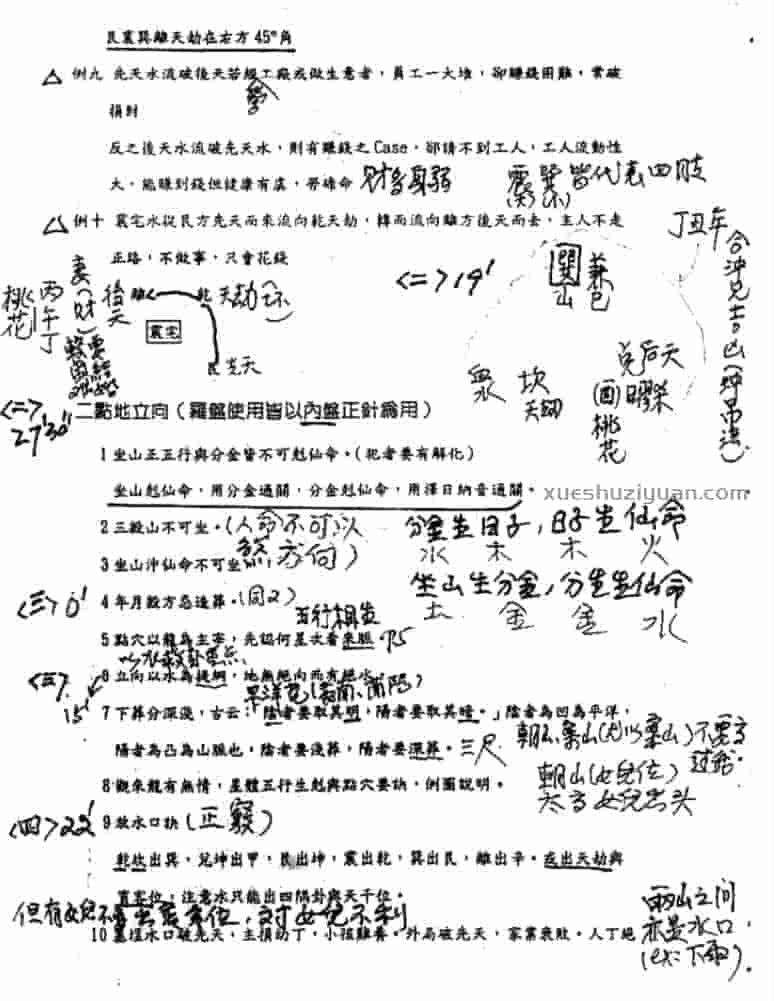 艮震巽離天劫在右方45°角
△ 例九 先天水流破後天若經工廠或做生意者，員工一大堆，卻賺錢困難，常破
營
損財
反之後天水流破先天水，則有賺錢之Case，卻請不到工人，工人流動性
大，能賺到錢但健康有虞，勞碌命 財多身弱
震巽皆代表四肢
△ 例十 震宅水從艮方先天而來流向乾天劫，轉而流向離方後天而去，主人不走
正路，不做事，只會花錢
<二>19'
丁丑年
兼包
山
妻(財)後天
離 乾 天劫
震宅
艮先天
丙午丁
桃花
坎 天劫
兌后天
(酉)曜煞
桃花
<二>27'30"
二點地立向（羅盤使用皆以內盤正針為用）
1 坐山正五行與分金皆不可剋仙命。(犯者要有解化)
坐山剋仙命，用分金通關，分金剋仙命，用擇日納音通關。
xueshuziyuan.com
2 三殺山不可坐。(人命不可以煞方向)
分金生日子，日子生仙命
水 木 木 火
3 坐山沖仙命不可坐
坐山生分金，分金生仙命
土 金 金 水
<三>0'
4 年月殺方忌造葬。(同2)
五行相生
5 點穴以龍為主宰，先認何星次看來脈
<三>15'
6 立向以水為提綱，地無絕向而有絕水
7 下葬分深淺，古云：「陰者要取其明，陽者要取其暗。」陰者為凹為平洋，
陽者為凸為山脈也，陰者要淺葬，陽者要深葬。三尺
朝山(女兒位)
太高女兒出头
8 觀來龍有無情，星體五行生剋與點穴要訣，例圖說明。
<四>22'
9 放水口訣(正竅)
乾坎出巽，兌坤出甲，艮出坤，震出乾，巽出艮，離出辛。或出天劫與
賓客位，注意水只能出四隅卦與天干位。
但有女兒不要出賓客位，対女兒不利
10 墓埕水口破先天，主損幼丁，小孩難養。外局破先天，家業衰敗。人丁絕
兩山之間
亦是水口，
(ex:下雨)。